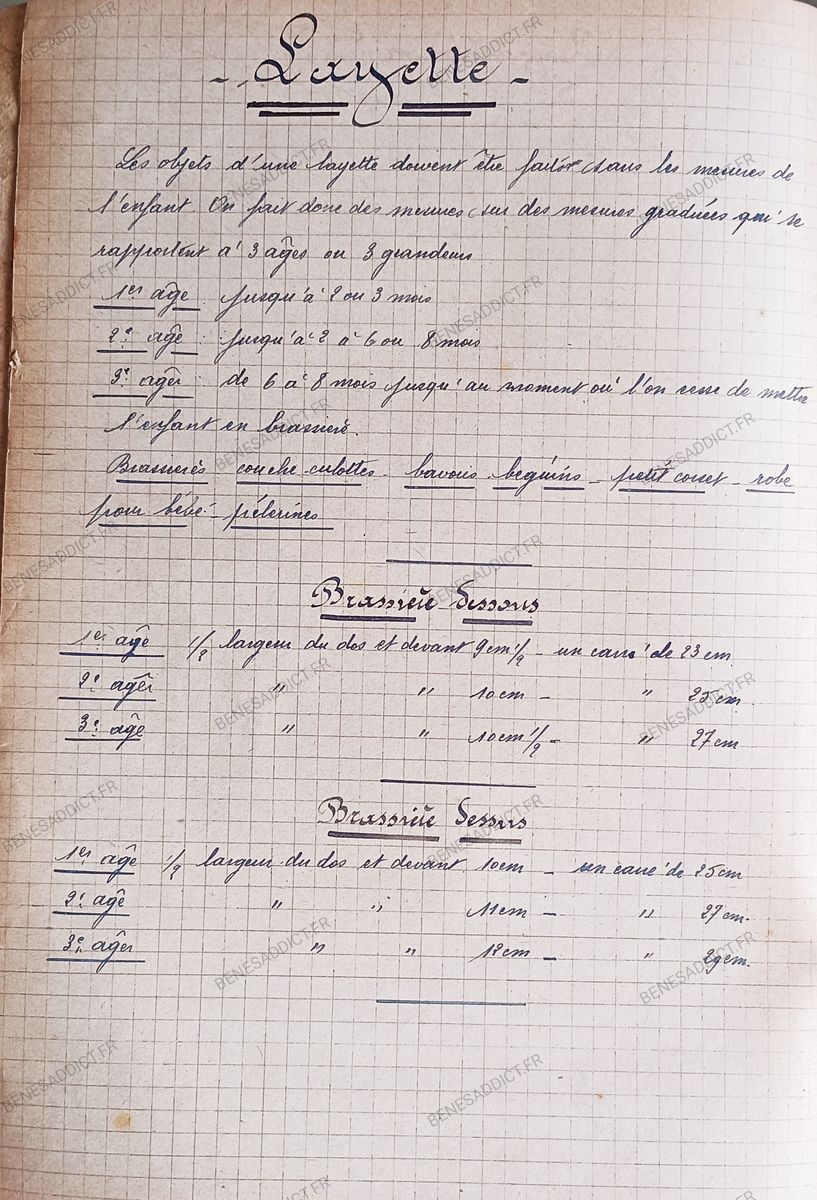 - Layette -
Les objets d'une layette doivent être faits sans les mesures de
l'enfant On fait donc des mesures sur des mesures graduées qui se
rapportent à 3 âges ou 3 grandeurs
1er âge : jusqu'à 2 ou 3 mois
2e âge : jusqu'à 2 à 6 ou 8 mois
3e âge : de 6 à 8 mois jusqu'au moment où l'on cesse de mettre
l'enfant en brassière.
Brassières couche-culottes - bavoirs - béguins - petit corset - robe
pour bébé - pélerines
Brassière Dessous
1er âge 1/2 largeur du dos et devant 9cm 1/2 - un carré de 23 cm
2e âge " " 10cm - " 25 cm
3e âge " " 10cm 1/2 - " 27 cm
Brassière Dessus
1er âge 1/2 largeur du dos et devant 10cm - un carré de 25 cm
2e âge " " 11cm - " 27 cm.
3e âge " " 12cm - " 29 cm.
BENESADDICT.FR